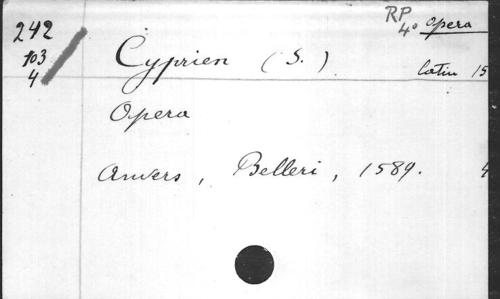 242
103
4
RP
4° Opera
Cyprien (S.)
latin 15
Opera
Anvers, Belleri, 1589. 4